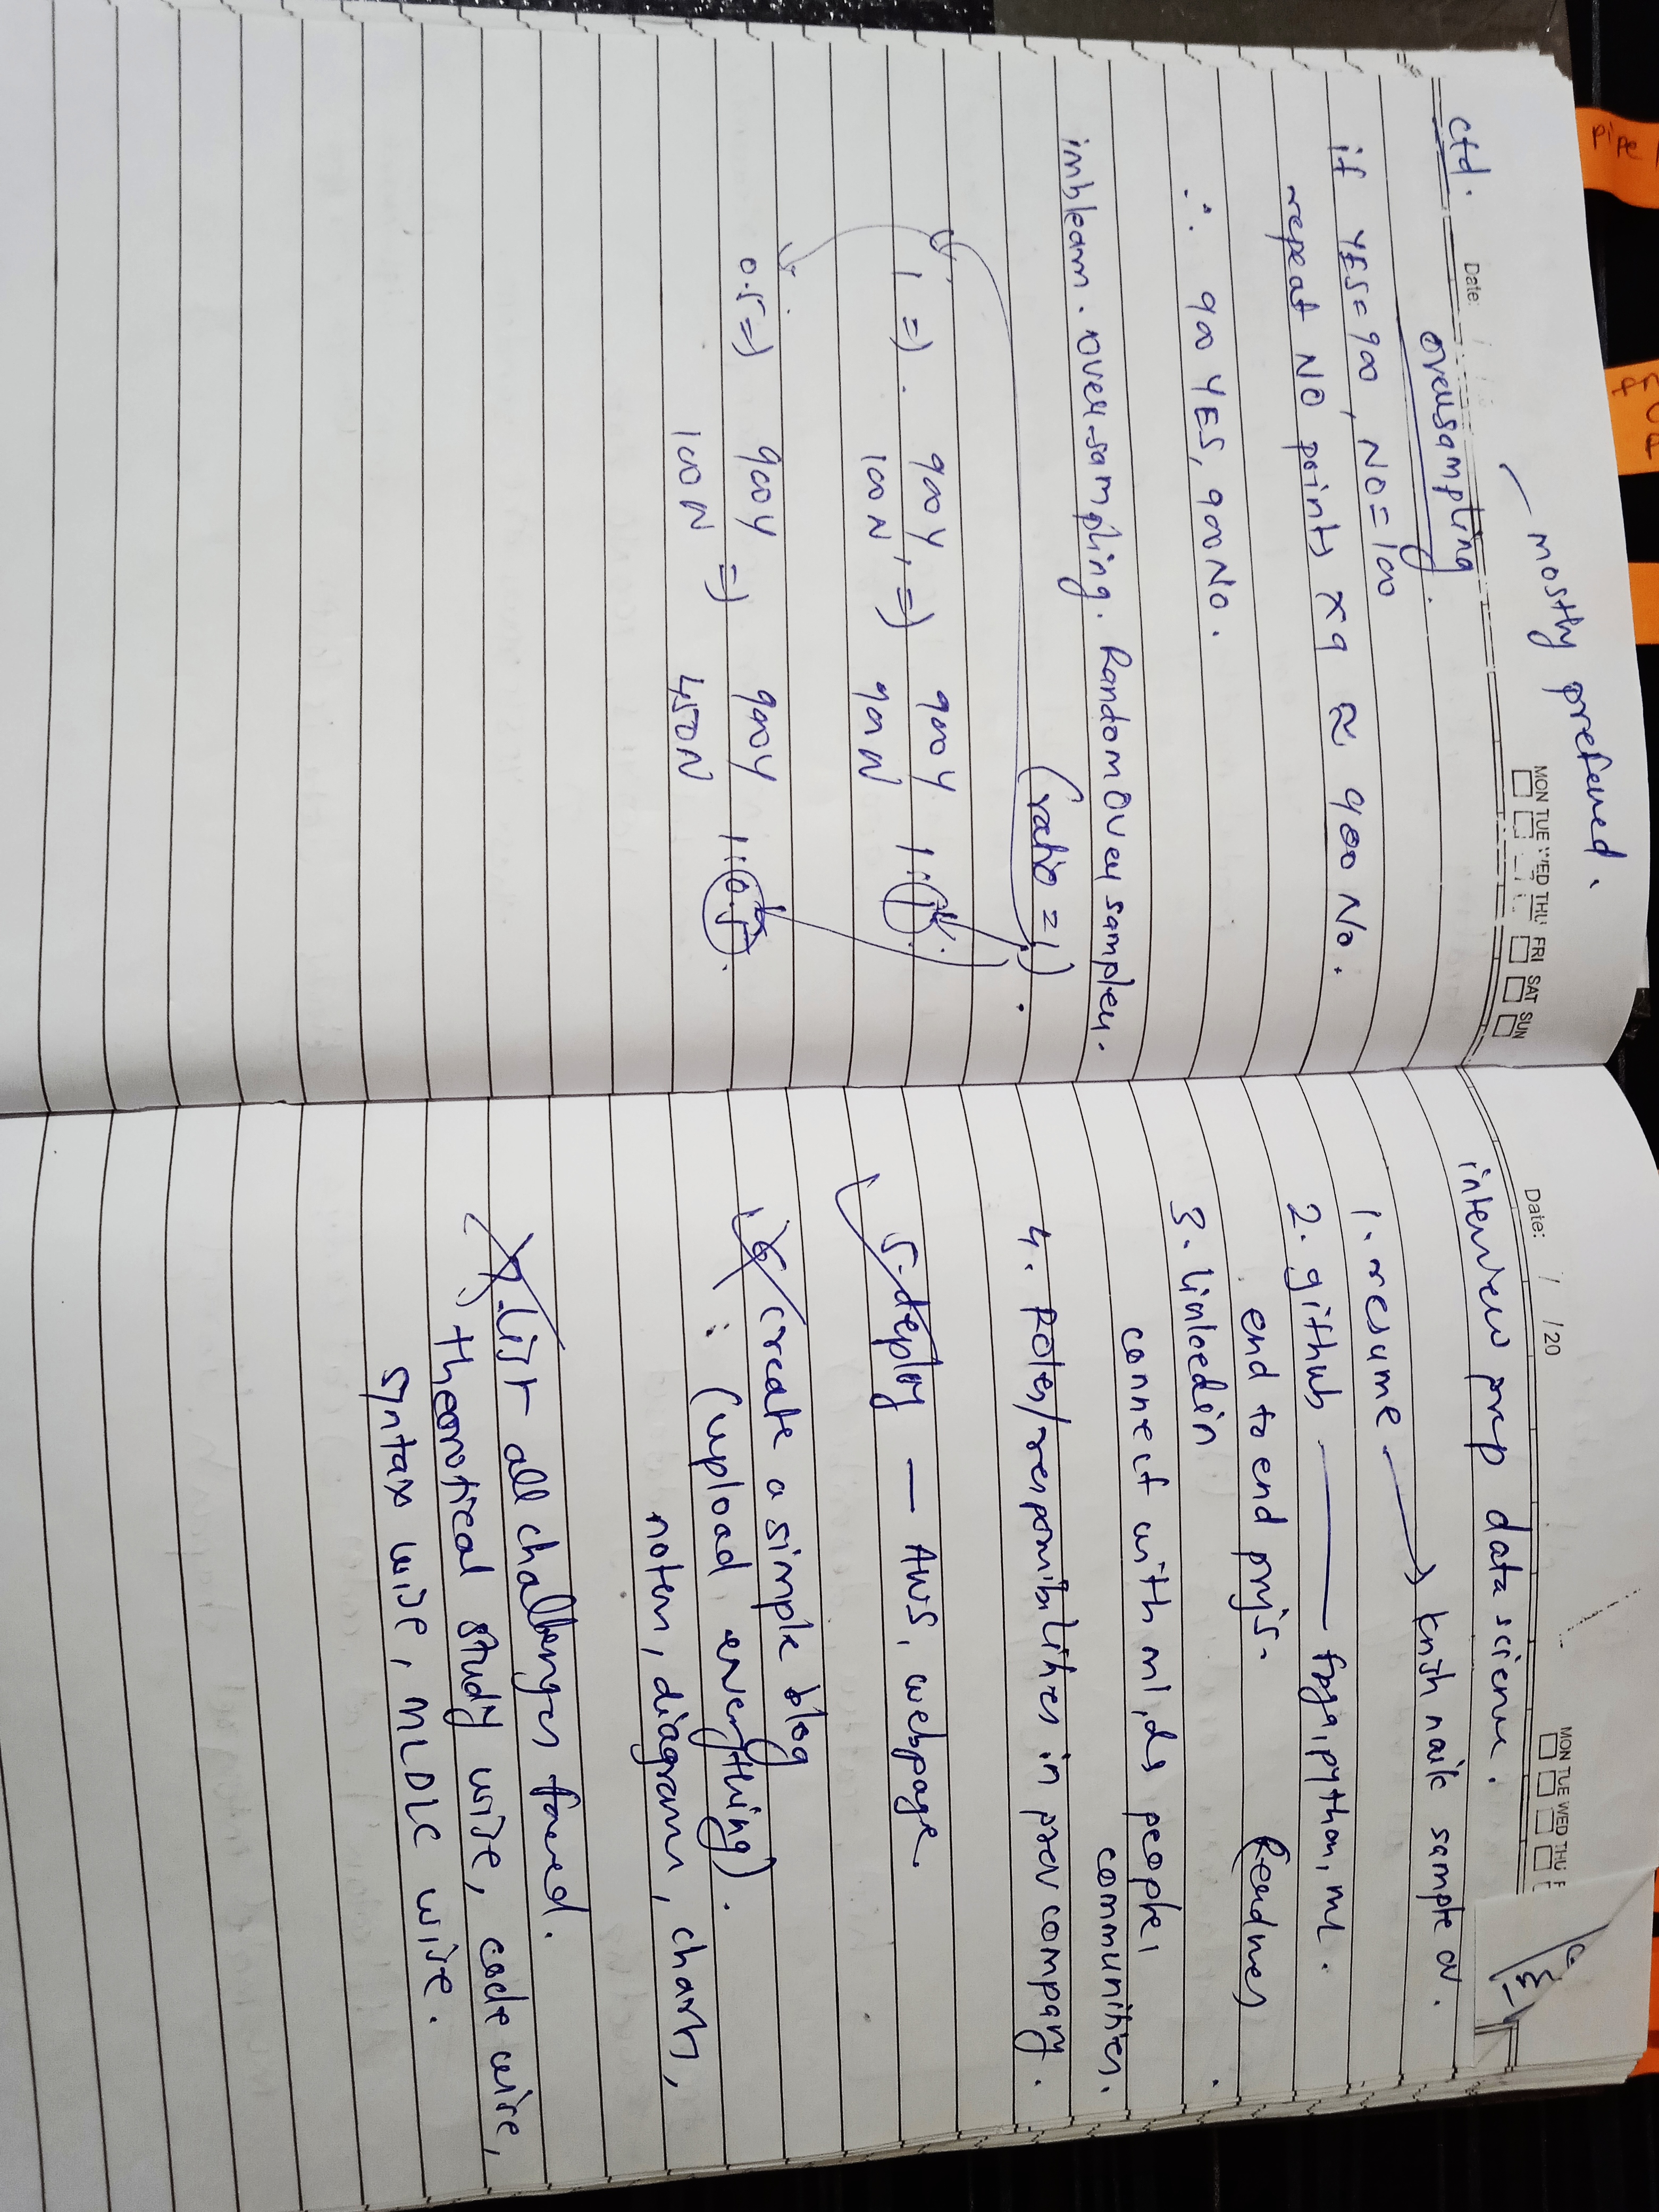 pipe
ctd.
Date:
— mostly prefered.
MON TUE WED THU FRI SAT SUN
oversampling.
if YES=900, NO=100
repeat NO points x9 ≈ 900 No.
∴ 900 YES, 900 No.
imblearn.over-sampling. RandomOversampler.
(ratio = 1)
1 => . 900Y 100N, => 900Y 900N 1:1
0.5 => 900Y 100N => 900Y 450N 1:0.5
Date: / /20
MON TUE WED THU F
interview prep data science.
1. resume → krish naik sample cv.
2. github — fsga, python, ml.
end to end projs. Readmes
3. linkedin
connect with ml, ds people,
communities.
4. Roles/responsibilities in prev company.
5. deploy — AWS, webpage.
6. create a simple blog
(upload everything).
notes, diagram, charts,
7. List all challenges faced.
theorotical study wise, code wise,
syntax wise, MLDLC wise.